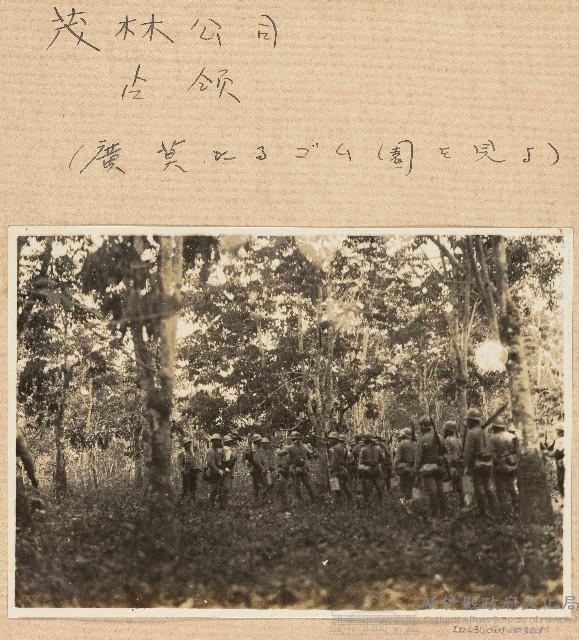 茂林公司
占領
(廣莫たるゴム園を見よ)
新竹縣政府文化局
Cultural Affairs Bureau of Hsinchu